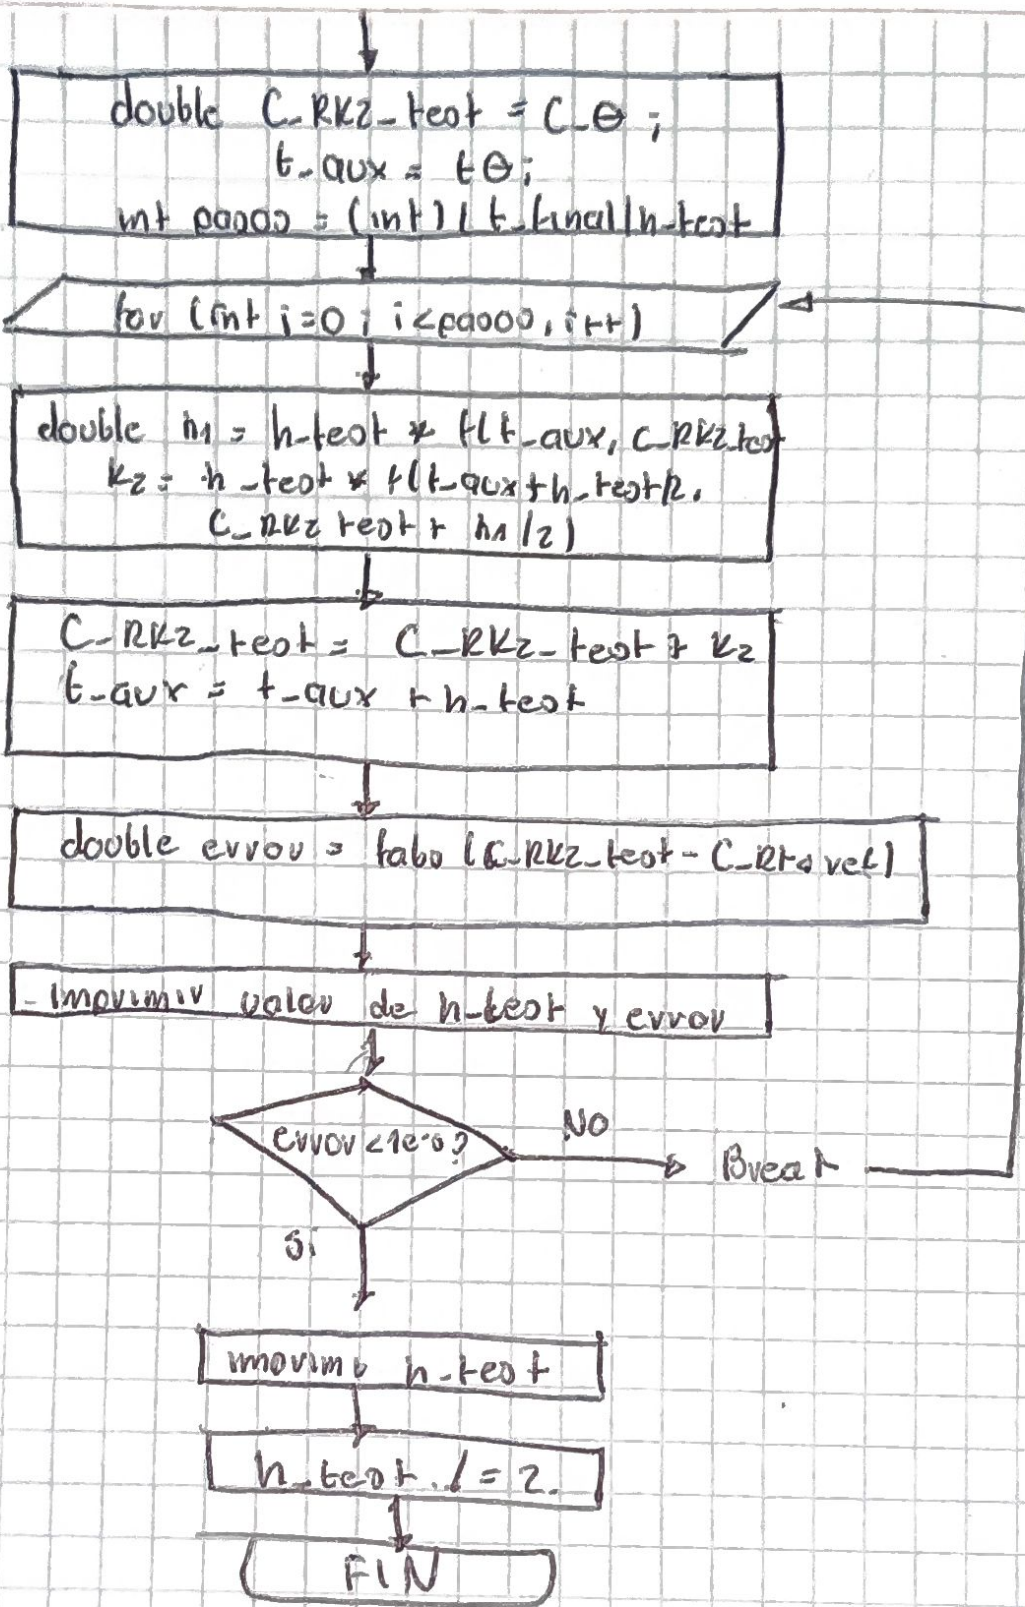 double C_RK2_test = C_0 ;
t_aux = t0;
int pasos = (int) ( t_final/h_test
for (int i=0 ; i<pasos, i++)
double k1 = h_test * f(t_aux, C_RK2_test
k2 = h_test * f(t_aux+h_test/2,
C_RK2 test + k1/2)
C_RK2_test = C_RK2_test + k2
t_aux = t_aux + h_test
double error = fabs (C_RK2_test - C_RK4 ref)
Imprimir valor de h_test y error
error <1e-8?
NO
Break
Si
imprimo h_test
h_test /= 2.
FIN